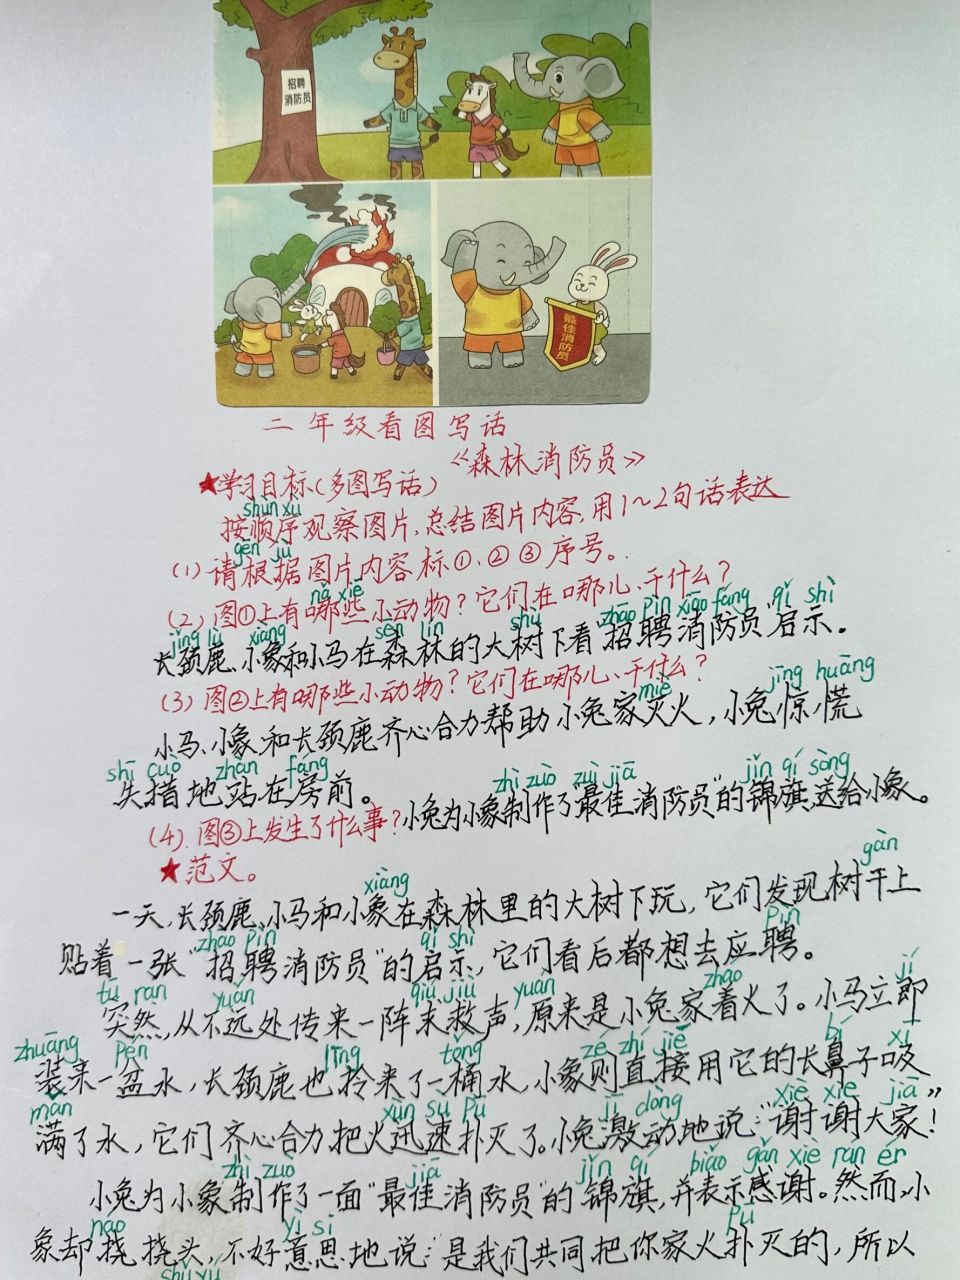 招聘
消防员
最佳消防员
二年级看图写话
《森林消防员》
★学习目标(多图写话)
shùn xù
按顺序观察图片,总结图片内容,用1～2句话表达
gēn jù
(1)请根据图片内容标①、②③序号。
nǎ xiē
(2)图①上有哪些小动物?它们在哪儿、干什么?
jǐng lù xiàng sēn lín shù zhāo pìn xiāo fáng qǐ shì
长颈鹿、小象和小马在森林的大树下看"招聘消防员"启示。
(3)图②上有哪些小动物?它们在哪儿、干什么?
miè jīng huāng
小马、小象和长颈鹿齐心合力帮助小兔家灭火,小兔惊慌
shī cuò zhàn fáng
失措地站在房前。
zhì zuò zuì jiā jǐn qí sòng
(4)图③上发生了什么事?小兔为小象制作了"最佳消防员"的锦旗送给小象。
★范文。
xiàng gàn
一天,长颈鹿、小马和小象在森林里的大树下玩,它们发现树干上
zhao pìn qǐ shì pìn
贴着一张"招聘消防员"的启示,它们看后都想去应聘。
tū rán yuǎn qiú jiù yuán zháo jí
突然,从不远处传来一阵求救声,原来是小兔家着火了。小马立即
zhuāng pén līng tǒng zé zhí jiē bí xī
装来一盆水,长颈鹿也拎来了一桶水,小象则直接用它的长鼻子吸
mǎn xùn sù pū jī dòng xiè xie jiā
满了水,它们齐心合力把火迅速扑灭了。小兔激动地说:"谢谢大家!"
zhì zuò jiā jǐn qí biǎo gǎn xiè rán ér
小兔为小象制作了一面"最佳消防员"的锦旗,并表示感谢。然而,小
náo yì si pū
象却挠挠头,不好意思地说:是我们共同把你家火扑灭的,所以